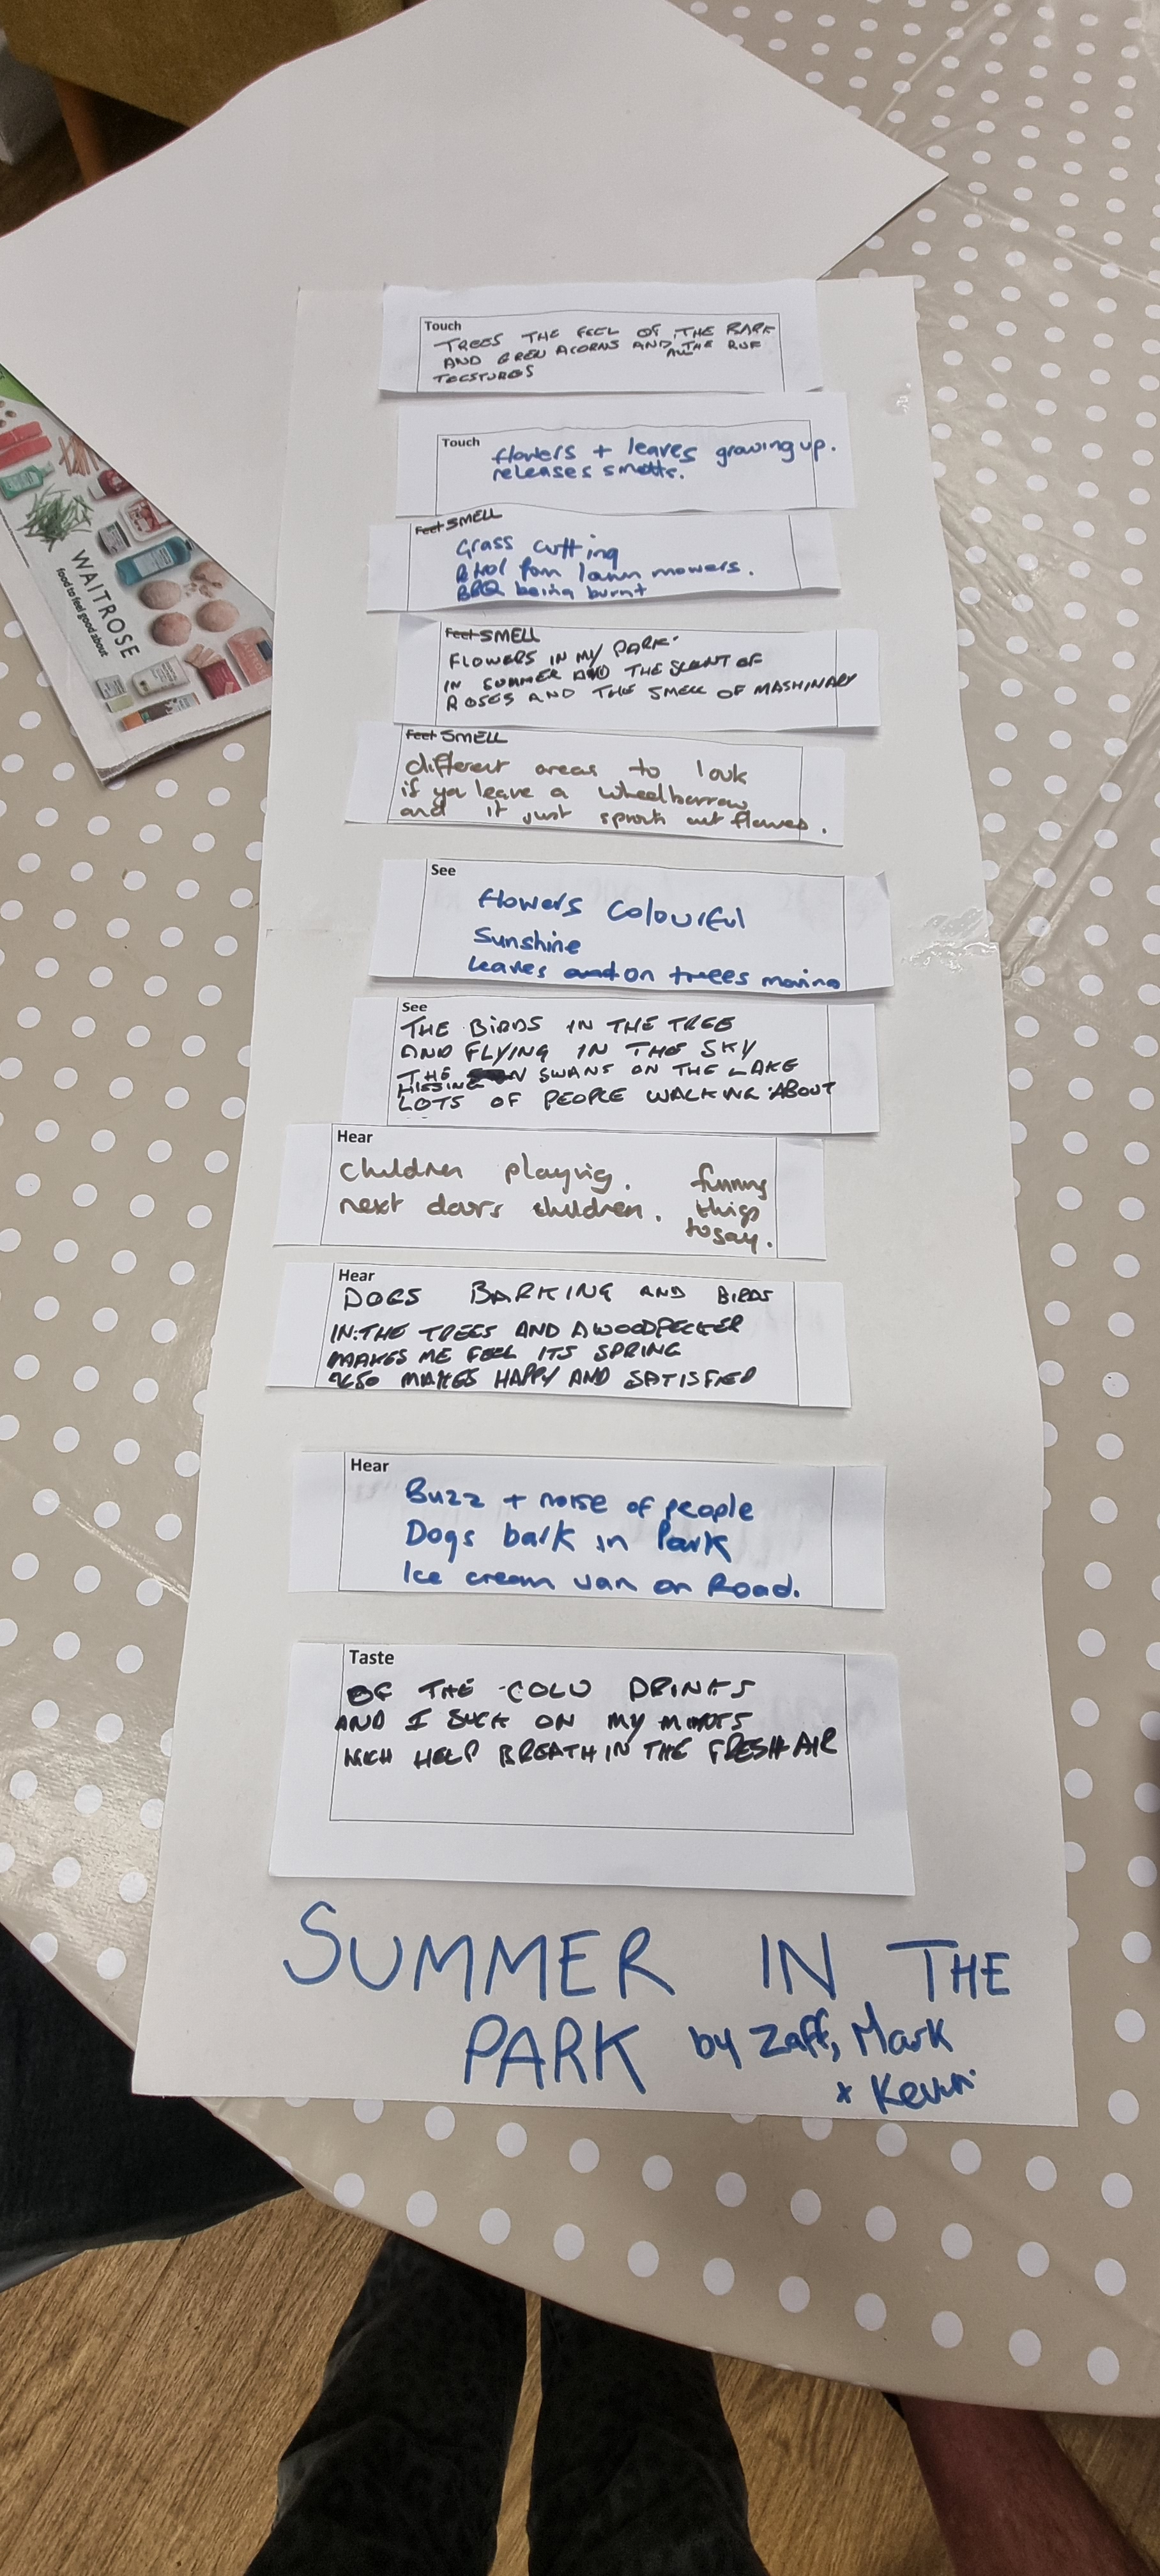 Touch
TREES THE FEEL OF THE BARK
AND GREN ACORNS AND ALL THE RUF
TECSTURES
Touch
flowers + leaves growing up.
releases smells.
Feel SMELL
Grass cutting
Petrol from lawn mowers.
BBQ being burnt
Feel SMELL
FLOWERS IN MY PARK
IN SUMMER AND THE SCENT OF
ROSES AND THE SMELL OF MASHINARY
Feel SMELL
different areas to look
if you leave a wheelbarrow
and it just sprouts out flowers.
See
flowers colourful
Sunshine
Leaves and on trees moving
See
THE BIRDS IN THE TREE
AND FLYING IN THE SKY
THE SWANS ON THE LAKE
HISSING
LOTS OF PEOPLE WALKING ABOUT
Hear
Children playing. funny
next doors children. things
to say.
Hear
DOGS BARKING AND BIRDS
IN THE TREES AND A WOODPECKER
MAKES ME FEEL ITS SPRING
ALSO MAKES HAPPY AND SATISFIED
Hear
Buzz + noise of people
Dogs bark in Park
Ice cream van on Road.
Taste
OF THE COLD DRINKS
AND I SUCK ON MY MINTS
WICH HELP BREATH IN THE FRESH AIR
SUMMER IN THE
PARK by Zaff, Mark
+ Kevin
WAITROSE
food to feel good about